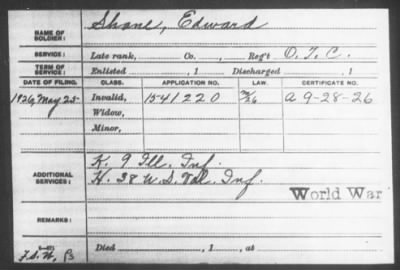 NAME OF SOLDIER: Shane, Edward
SERVICE: Late rank, Co. , Reg't O. T. C.
TERM OF SERVICE: Enlisted , 1 Discharged , 1
DATE OF FILING. CLASS. APPLICATION NO. LAW. CERTIFICATE NO.
1926, May 25 Invalid, 1541220 A 9-28-26
Widow,
Minor,
ADDITIONAL SERVICES: K. 9 Ill. Inf.
H. 38 U. S. Vol. Inf.
World War
REMARKS:
Died , 1 , at